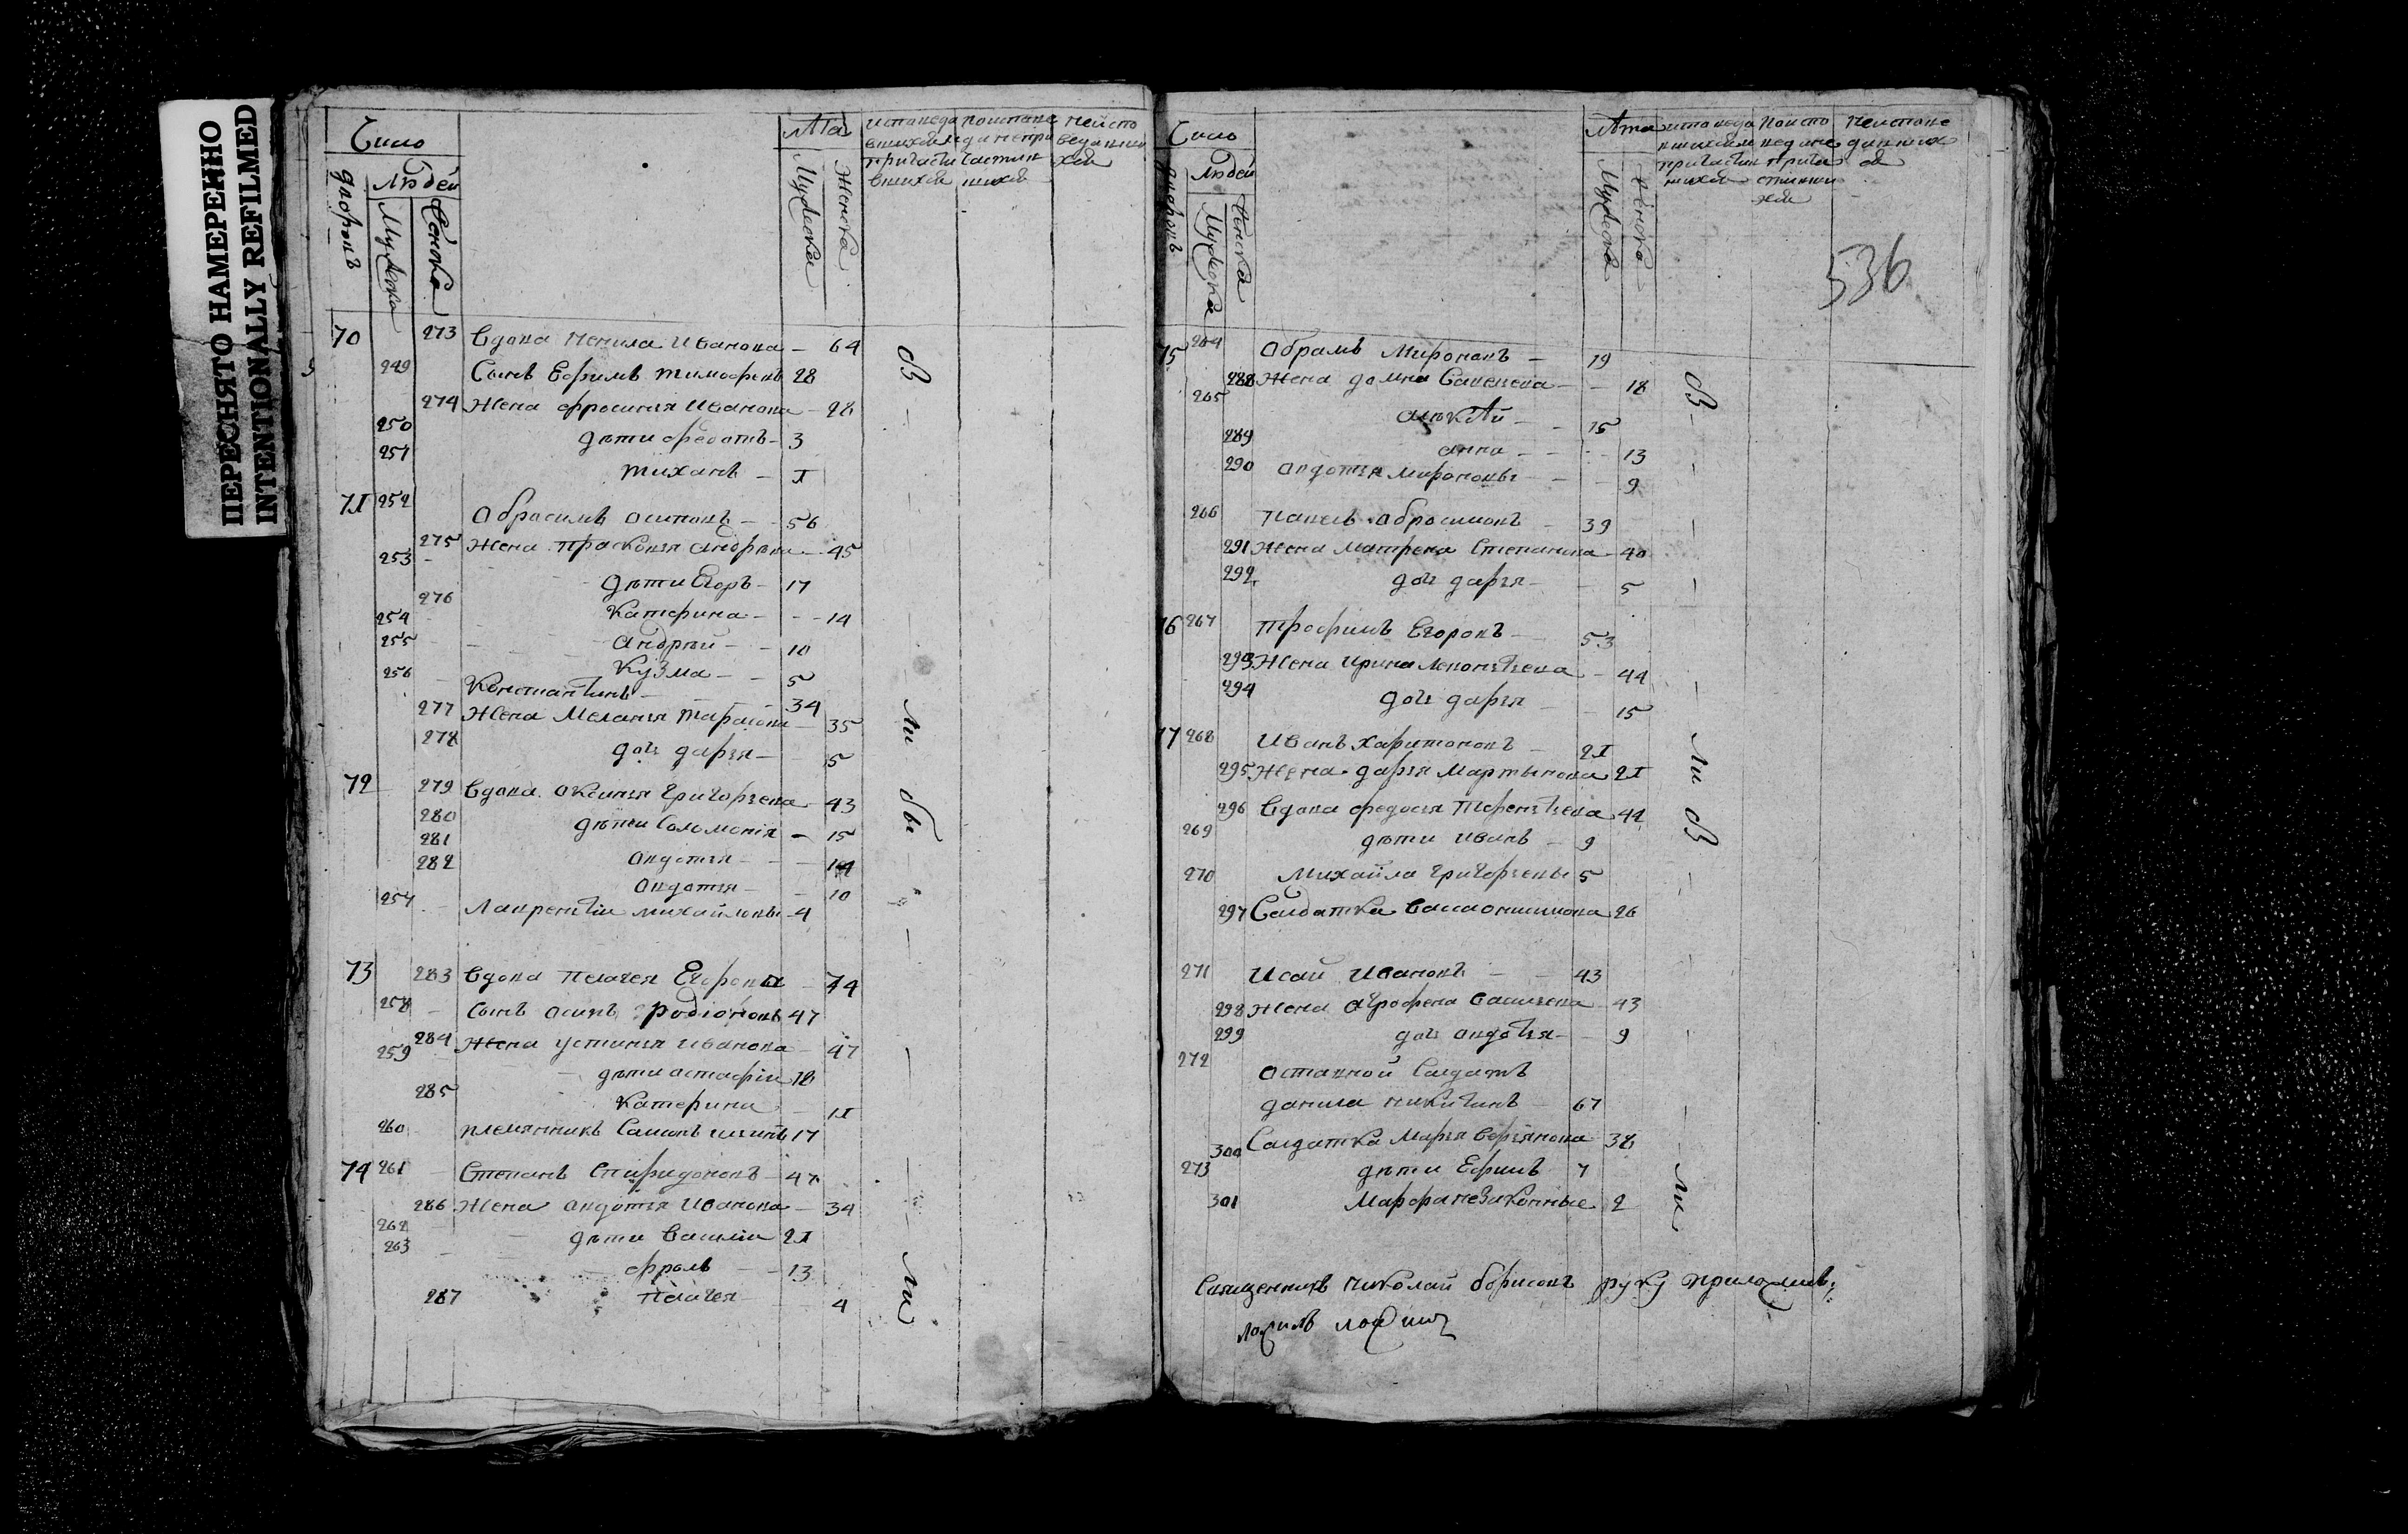 ПЕРЕСНЯТО НАМЕРЕННО
INTENTIONALLY REFILMED
Число
Людей
дворовъ
Мужеска
Женска
Лѣта
Мужеска
Женска
70 273 Вдова Ненила Иванова – 64
249 Сынъ Ефимъ Тимофѣевъ 28
274 Жена Фросинья Иванова – 28
250 дѣти Федотъ – 3
251 Тиханъ – I
7I 252 Абросимъ Осиповъ – 56
275 Жена Прасковья Андрѣева – 45
253 дѣти Егоръ – 17
276 Катерина – 14
254 Андрѣй – 10
255 Кузма – 5
256 Константинъ – 34
277 Жена Меланья Тарасова – 35
278 дочь Дарья – 5
72 279 Вдова Аксинья Григорьева – 43
280 дѣти Соломонія – 15
281 Авдотья –
282 Авдотья – 10
257 Лаврентій Михайловы – 4
73 283 Вдова Пелагея Егорова – 74
258 Сынъ Осипъ Родіоновъ 47
284 Жена Устинья Иванова – 47
259 дѣти Астафій 18
285 Катерина – 1I
260 племянникъ 17
74 261 Степанъ Спиридоновъ – 47
286 Жена Авдотья Иванова – 34
262 дѣти Василій 2I
263 Фролъ – 13
287 Пелагея – 4
ли
бы
ли
Число
Людей
дворовъ
Мужеска
Женска
Лѣта
Мужеска
Женска
536
75 264 Абрамъ Мироновъ – 19
288 Жена Домна Савельева – 18
265 Алексѣй – 15
289 Анна – 13
290 Авдотья Мироновы – 9
266 Павелъ Абросимовъ – 39
291 Жена Матрена Степанова – 40
292 дочь Дарья – 5
76 267 Трофимъ Егоровъ – 53
293 Жена Ирина Леонтьева – 44
294 дочь Дарья – 15
77 268 Иванъ Харитоновъ – 2I
295 Жена Дарья Мартынова 2I
296 Вдова Федосья Терентьева 42
269 дѣти Иванъ – 9
270 Михайла Григорьевы 5
297 Салдатка 26
271 Исай Ивановъ – 43
298 Жена Аграфена Васильева – 43
299 дочь Авдотья – 9
272 Оставной Салдатъ
Данила Никитинъ – 67
300 Салдатка Марья 38
273 дѣти Ефимъ 7
301 Марфа незаконные 2
ли
ли
Священникъ Николай Борисовъ руку приложилъ